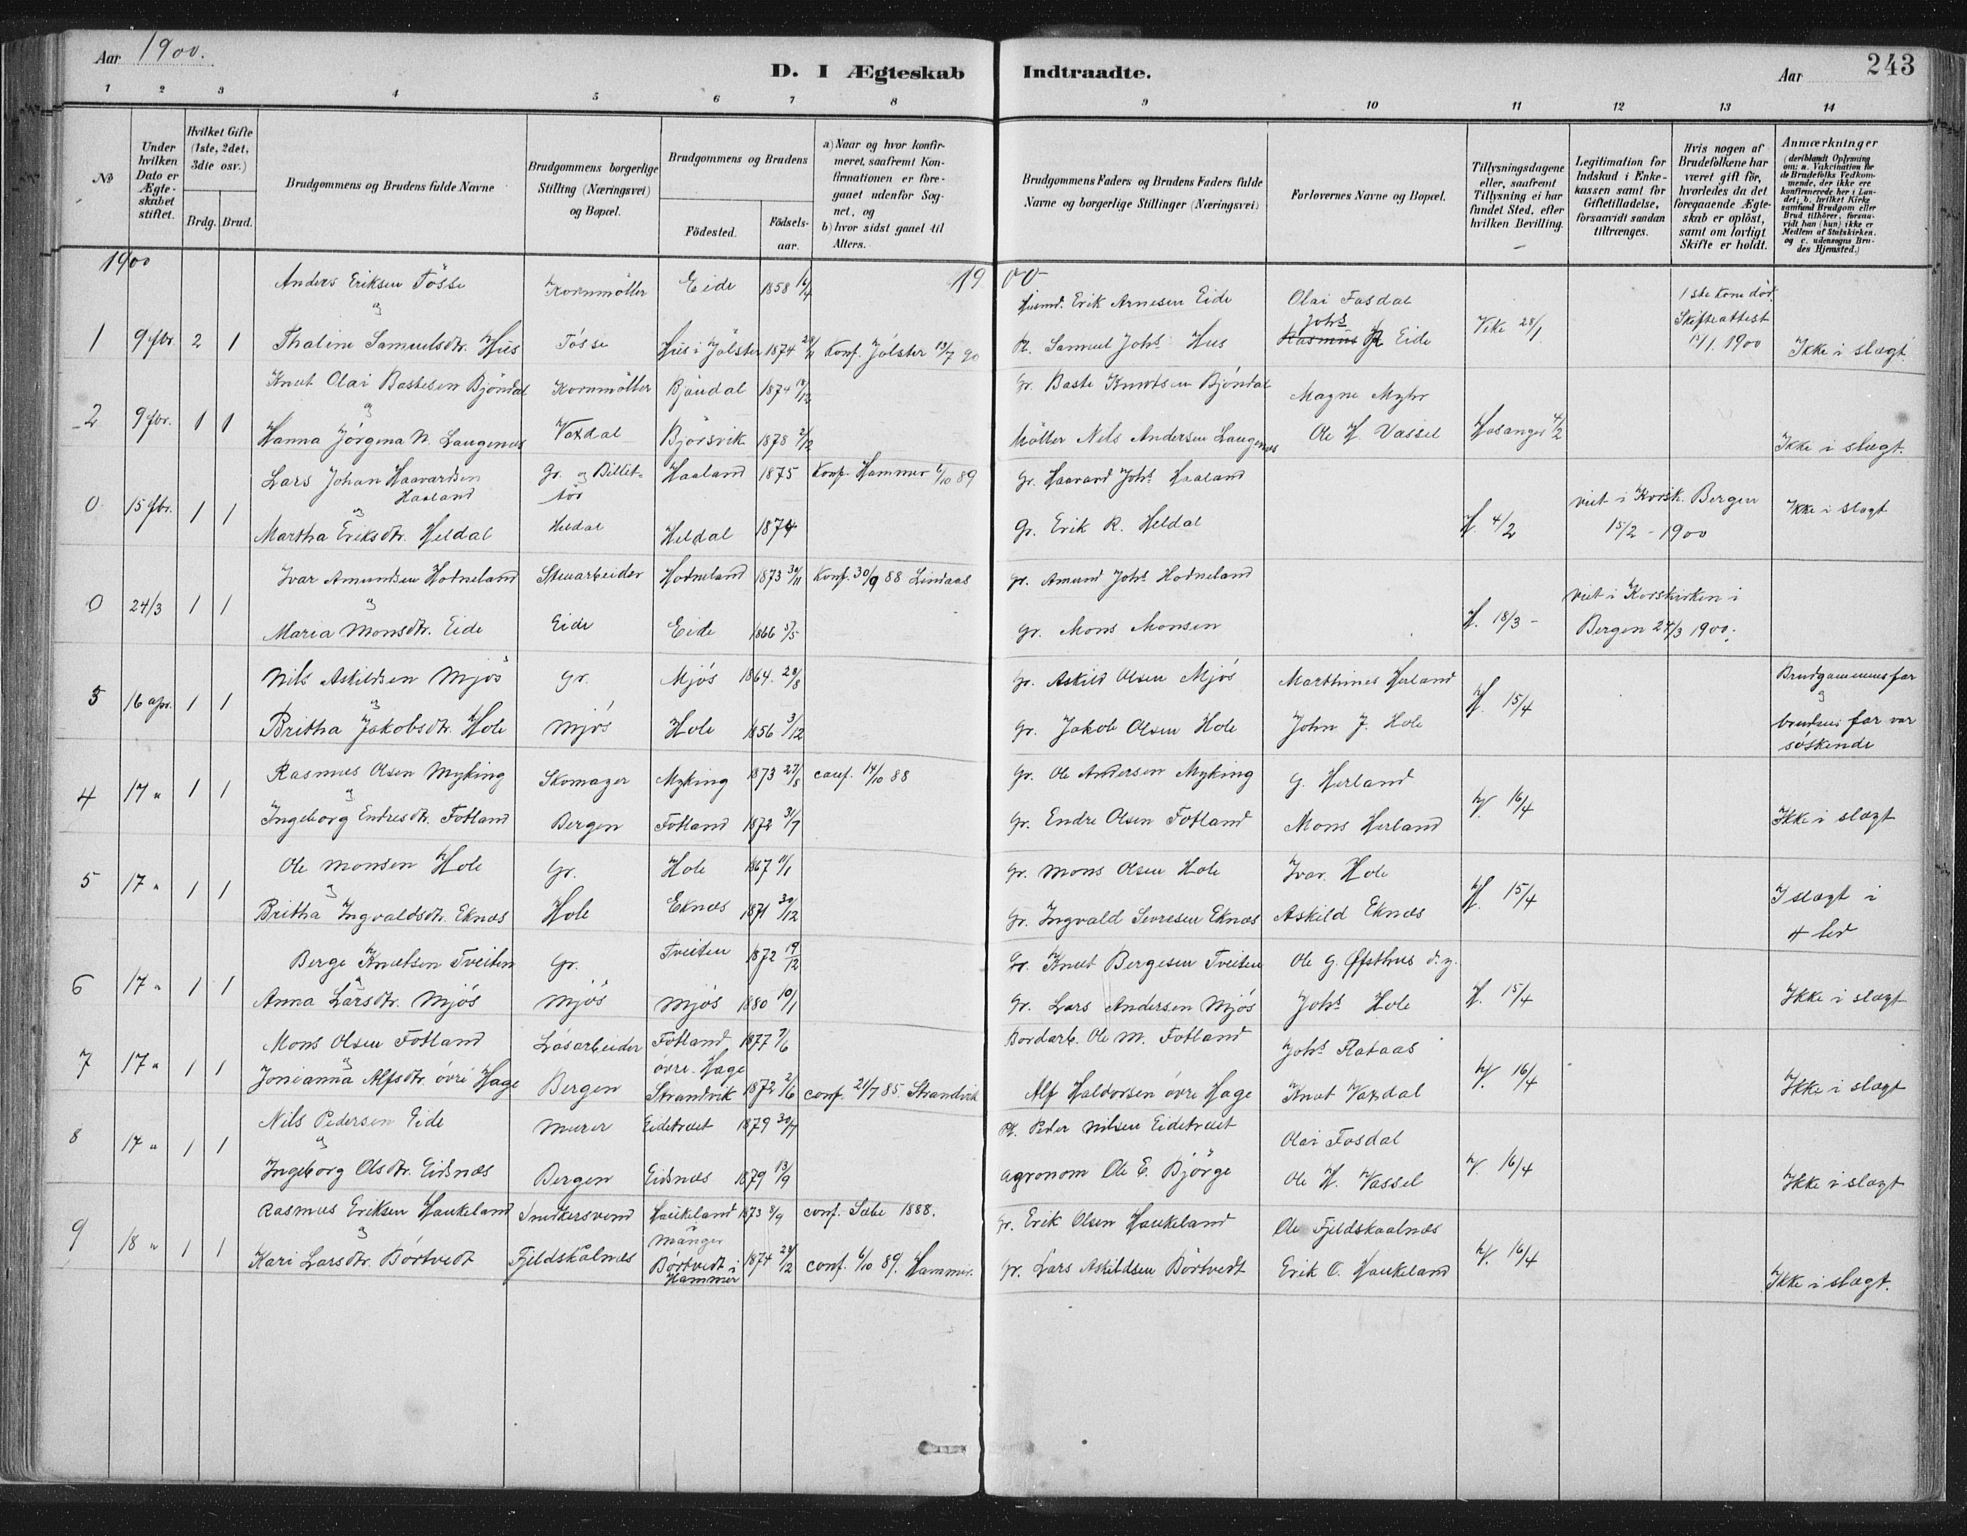 Aar 1900.
D. I Ægteskab Indtraadte.
Aar
243
1 2 3 4 5 6 7 8 9 10 11 12 13 14
No
Under hvilken Dato er Ægteskabet stiftet.
Hvilket Gifte (1ste, 2det, 3die osv.)
Brdg. Brud.
Brudgommens og Brudens fulde Navne
Brudgommens borgerlige Stilling (Næringsvei) og Bopæl.
Brudgommens og Brudens
Fødested.
Fødselsaar.
a) Naar og hvor konfirmeret, saafremt Konfirmationen er foregaaet udenfor Sognet, og
b) hvor sidst gaaet til Alters.
Brudgommens Faders og Brudens Faders fulde Navne og borgerlige Stillinger (Næringsvei)
Forlovernes Navne og Bopæl.
Tillysningsdagene eller, saafremt Tillysning ei har fundet Sted, efter hvilken Bevilling.
Legitimation for Indskud i Enkekassen samt for Giftetilladelse, forsaavidt saadan tiltrænges.
Hvis nogen af Brudefolkene har været gift før, hvorledes da det foregaaende Ægteskab er opløst, samt om lovligt Skifte er holdt.
Anmærkninger
(deriblandt Oplysning om: a. Vakcination for de Brudefolks Vedkommende, der ikke ere konfirmerede her i Landet; b. hvilket Kirkesamfund Brudgom eller Brud tilhører, forsaavidt han (hun) ikke er Medlem af Statskirken, og c. udensogns Brudes Hjemsted.)
1900
1900
Anders Eriksen Tösse Kornmöller Eide 1858 16/4 Husmd. Erik Arnesen Eide Olai Fosdal 1ste Kone död
1 9 fbr. 2 1 Thaline Samuelsdtr. Hus Tösse Hus i Jölster 1874 Konf. Jölster 13/7 90 Pl. Samuel Johs Hus Johs Rasmus Eide Veke 28/1 Skifteattest 1900 Ikke i slægt
Knut Olai Bastesen Bjöndal Kornmöller Bjöndal 1874 Gr. Baste Knutsen Bjöndal Magne Myhr
2 9 fbr. 1 1 Hanna Jörgina N. Laugenæs Vaxdal Björsvik 1878 2/12 Möller Nils Andersen Laugenæs Ole H. Vassel Hosanger 4/2 Ikke i slægt.
Lars Johan Haavardsen Haaland Gr. og Billettör Haaland 1875 Konf. Hammer 6/10 89 Gr. Haavard Johs Haaland
0 15 fbr. 1 1 Martha Eriksdtr. Heldal Heldal Heldal 1874 Gr. Erik R. Heldal H 4/2 viet i Korsk. Bergen 15/2 - 1900 Ikke i slægt
Ivar Amundsen Hodneland Stenarbeider Hodneland 1873 30/11 Konf. 30/9 88 Lindaas Gr. Amund Johs Hodneland
0 24/3 1 1 Maria Monsdtr. Eide Eide Eide 1866 Gr. Mons Monsen H. 18/3 - viet i Korskirken i Bergen 24/3 1900.
Nils Askildsen Mjös Gr. Mjös 1864. 28/8 Gr. Askild Olsen Mjös Marthines Herland Brudgommens far
3 16 apr. 1 1 Britha Jakobsdtr. Hole Mjös Hole 1856 3/12 Gr. Jakob Olsen Hole John J. Hole H. 15/4 og brudens far var söskende
Rasmus Olsen Myking Skomager Myking 1873 conf. 14/10 88 Gr. Ole Andersen Myking G. Herland
4 17 " 1 1 Ingeborg Endresdtr. Fotland Bergen Fotland 1872 31/7 Gr. Endre Olsen Fotland Mons Herland V. 16/4 Ikke i slægt
Ole Monsen Hole Gr. Hole 1867 11/1 Gr. Mons Olsen Hole Ivar Hole
5 17 " 1 1 Britha Ingvaldsdtr. Eknæs Hole Eknæs 1871 30/12 Gr. Ingvald Sevresen Eknæs Askild Eknæs H. 15/4 I slægt i 4 led
Berge Knutsen Tveiten Gr. Tveiten 1872 19/12 Gr. Knut Bergesen Tveiten Ole G. Øfsthus d.y.
6 17 " 1 1 Anna Larsdtr. Mjös Mjös Mjös 1880 10/1 Gr. Lars Andersen Mjös Johs Hole H. 15/4 Ikke i slægt
Mons Olsen Fotland Lösarbeider Fotland 1877 7/6 Bordarb. Ole M. Fotland Johs Flataas
7 17 " 1 1 Jonianna Alfsdtr. övre Hage Bergen övre Hage Strandvik 1872 2/6 conf. 21/7 85. Strandvik Alf Haldorsen övre Hage Knut Vaxdal V. 16/4 Ikke i slægt
Nils Pedersen Eide Murer Eidetræet 1879 30/7 Pl. Peder Nilsen Eidetræet Olai Fosdal
8 17 " 1 1 Ingeborg Olsdtr. Eidsnæs Bergen Eidsnæs 1879 13/9 agronom Ole E. Björge Ole H. Vassel V. 16/4 Ikke i slægt
Rasmus Eriksen Haukeland Snedkersvend Haukeland Manger 1873 8/9 conf. Sæbö 1888. Gr. Erik Olsen Haukeland Ole Fjeldskaalnæs
9 18 " 1 1 Kari Larsdtr. Börtvedt Fjeldskålnæs Börtvedt i Hammer 1874 conf. 6/10 89. Hammer. Gr. Lars Askildsen Börtvedt Erik O. Haukeland V. 16/4 Ikke i slægt.